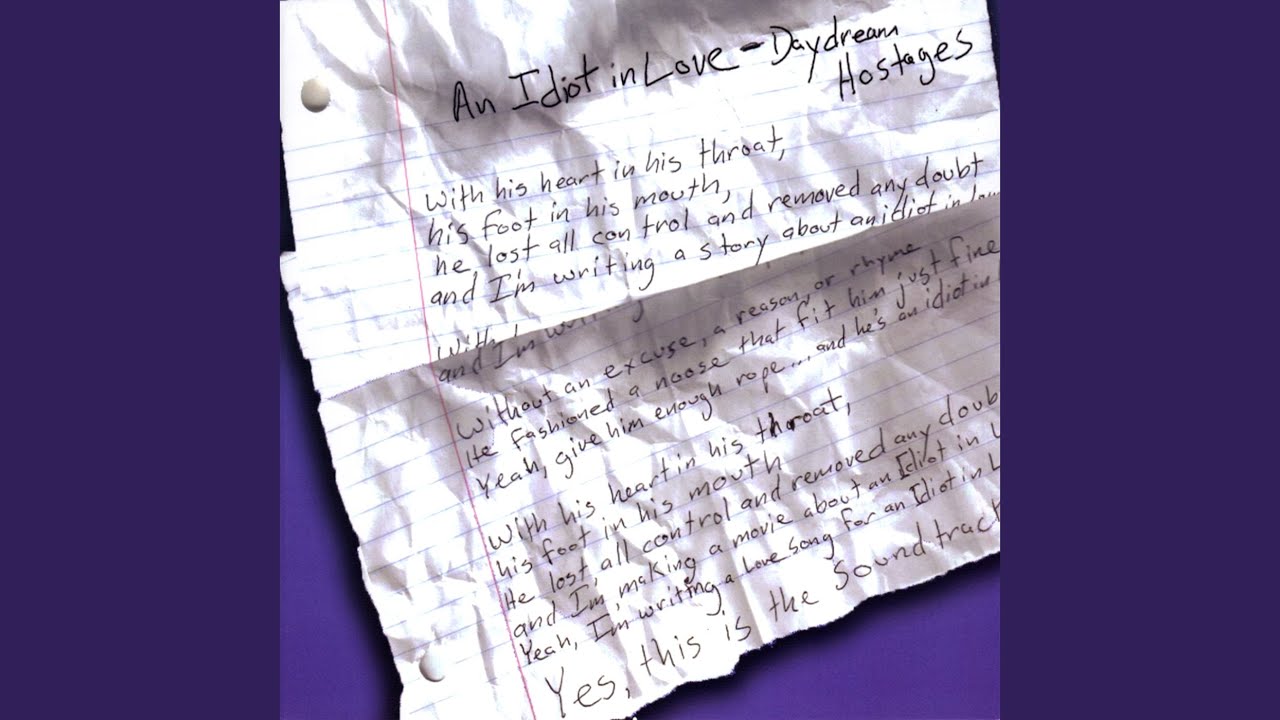 An Idiot in Love - Daydream
Hostages
With his heart in his throat,
his foot in his mouth,
he lost all control and removed any doubt
and I'm writing a story about an idiot in
and I'm
Without an excuse, a reason, or rhyme
He fashioned a noose that fit him just fine
Yeah, give him enough rope... and he's an idiot in
With his heart in his throat,
his foot in his mouth
He lost all control and removed any doub
and I'm making a movie about an Idiot in L
Yeah, I'm writing a love song for an Idiot in L
Yes, this is the Soundtrack